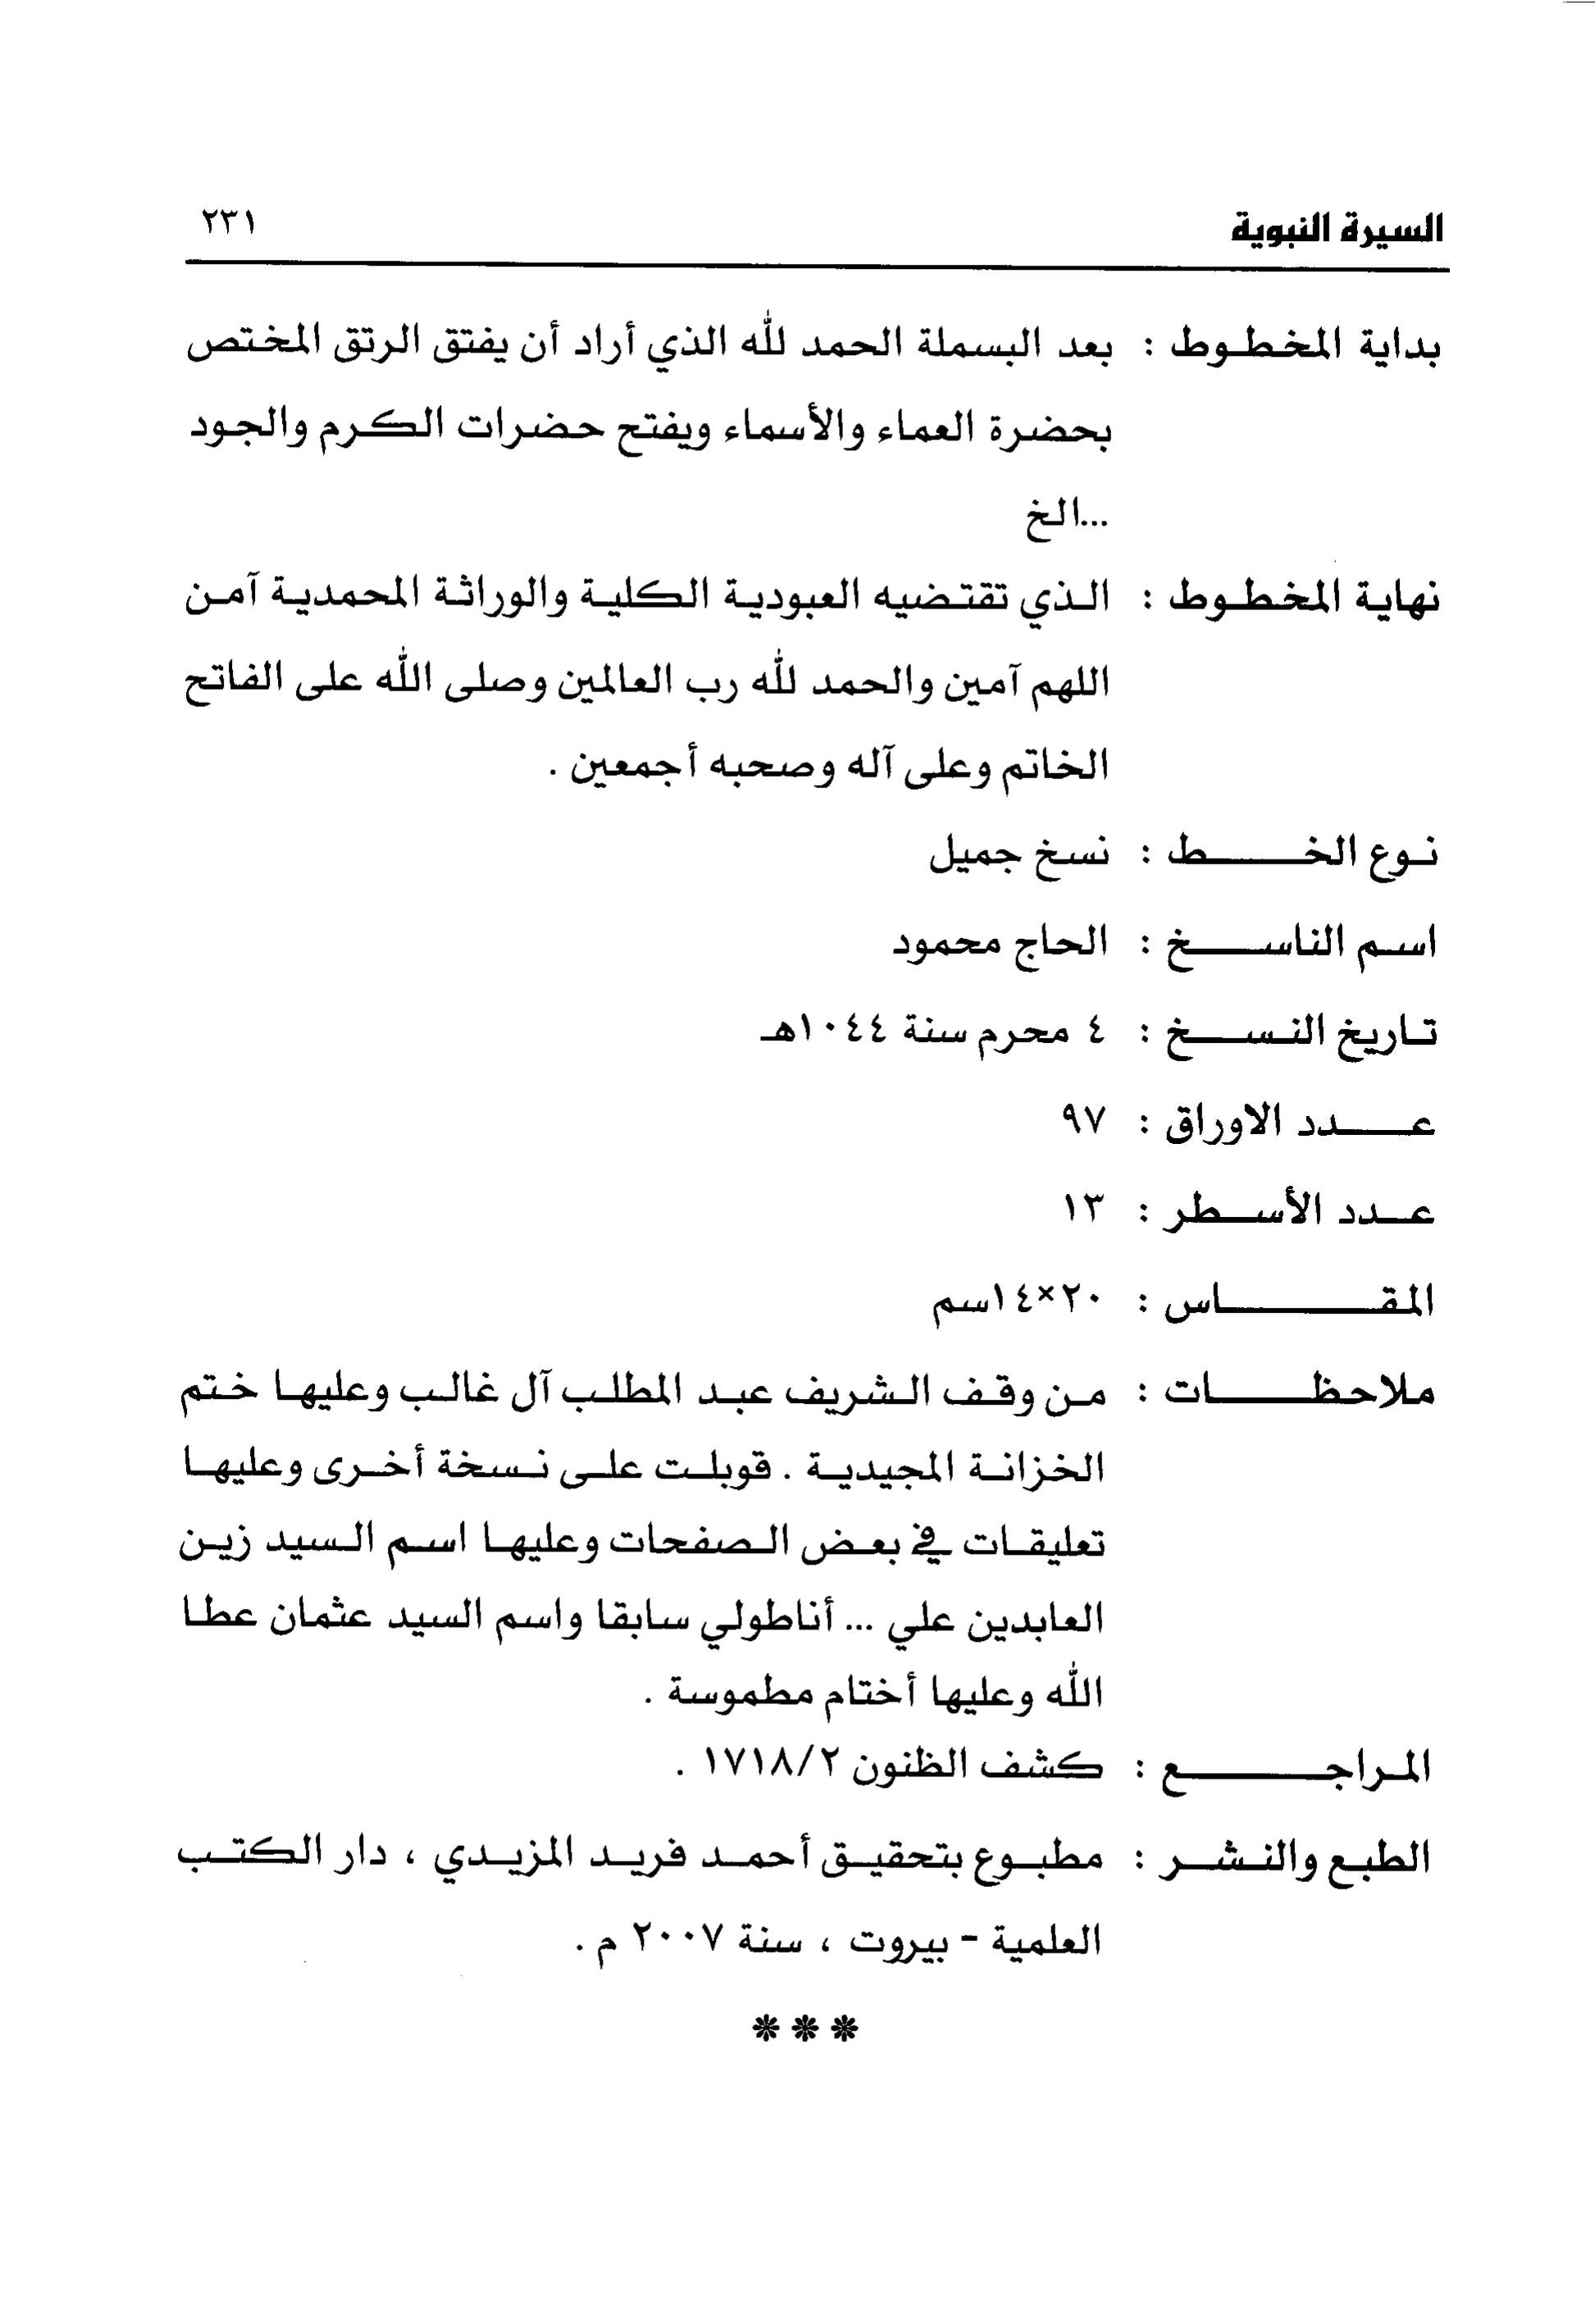 السيرة النبوية ٢٣١
بداية المخطوط : بعد البسملة الحمد لله الذي أراد أن يفتق الرتق المختص
بحضرة العماء والأسماء ويفتح حضرات الكرم والجود
...الخ
نهاية المخطوط : الذي تقتضيه العبودية الكلية والوراثة المحمدية آمن
اللهم آمين والحمد لله رب العالمين وصلى الله على الفاتح
الخاتم وعلى آله وصحبه أجمعين .
نوع الخط : نسخ جميل
اسم الناسخ : الحاج محمود
تاريخ النسخ : ٤ محرم سنة ١٠٤٤هـ
عدد الاوراق : ٩٧
عدد الأسطر : ١٣
المقاس : ٢٠×١٤سم
ملاحظات : من وقف الشريف عبد المطلب آل غالب وعليها ختم
الخزانة المجيدية . قوبلت على نسخة أخرى وعليها
تعليقات في بعض الصفحات وعليها اسم السيد زين
العابدين علي ... أناطولي سابقا واسم السيد عثمان عطا
الله وعليها أختام مطموسة .
المراجع : كشف الظنون ١٧١٨/٢ .
الطبع والنشر : مطبوع بتحقيق أحمد فريد المزيدي ، دار الكتب
العلمية - بيروت ، سنة ٢٠٠٧ م .
❋ ❋ ❋